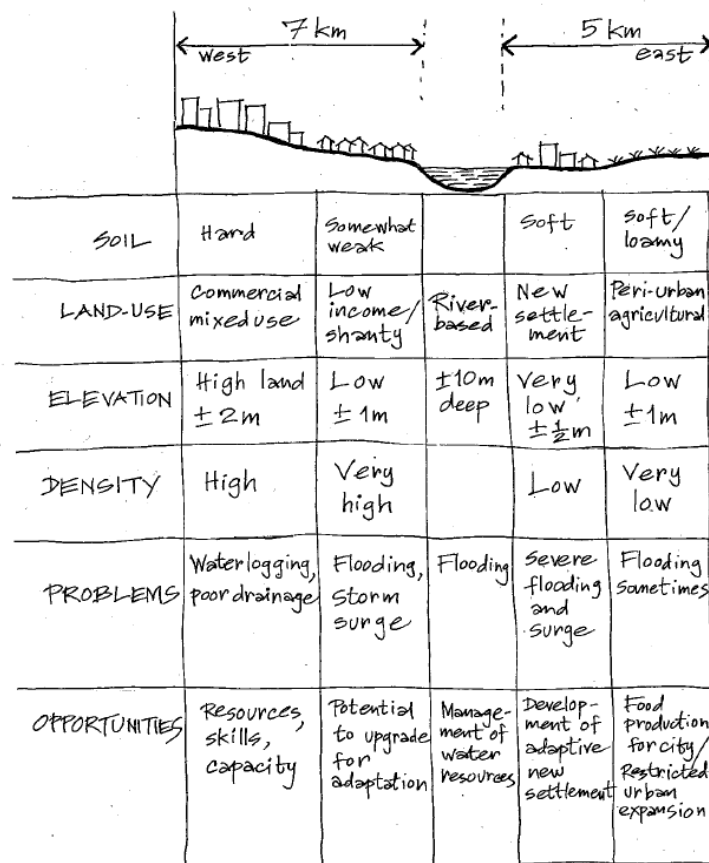 7 km
5 km
west
east
SOIL
Hard
Somewhat
weak
Soft
Soft/
loamy
LAND-USE
Commercial
mixed use
Low
income/
shanty
River-
based
New
settle-
ment
Peri-urban
agricultural
ELEVATION
High land
± 2m
Low
± 1m
±10m
deep
Very
low
± ½m
Low
±1m
DENSITY
High
Very
high
Low
Very
low
PROBLEMS
Waterlogging,
poor drainage
Flooding,
storm
surge
Flooding
Severe
flooding
and
surge
Flooding
sometimes
OPPORTUNITIES
Resources,
skills,
capacity
Potential
to upgrade
for
adaptation
Manage-
ment of
water
resources
Develop-
ment of
adaptive
new
settlement
Food
production
for city/
Restricted
urban
expansion